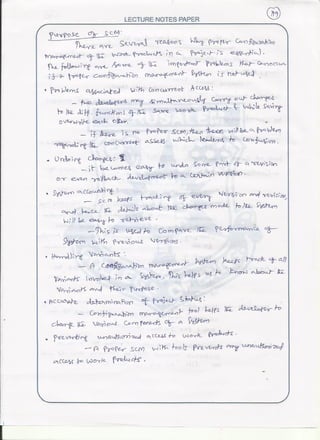 LECTURE NOTES PAPER
Purpose of SCM:
There are several reasons why proper configuration
management of the work products in a project is essential.
The following are some of the important problems that can occur
if a proper configuration management system is not used.
• Problems associated with Concurrent Access:
– two developers may simultaneously carry out changes
to the diff functions of the same work product & while saving
overwrite each other.
– if there is no proper SCM, then there will be a problem
regarding the concurrent access which leads to confusion.
• Undoing changes:
– it becomes easy to undo some part of a revision
or even rollback development to a certain version.
• System accounting
– SCM keeps tracking of every version and revision,
and hence the details about the changes made to the system
will be easy to retrieve.
– This is used to compare the performance of
System with previous versions.
• Handling variants:
– A configuration management system keeps track of all
variants involved in a system. This helps us to know about the
variants and their purpose.
• Accurate determination of project status:
– Configuration management tool helps the developer to
change the various components of a system
• Preventing unauthorized access to work products.
– A proper SCM with tools prevents any unauthorized
access to work products.